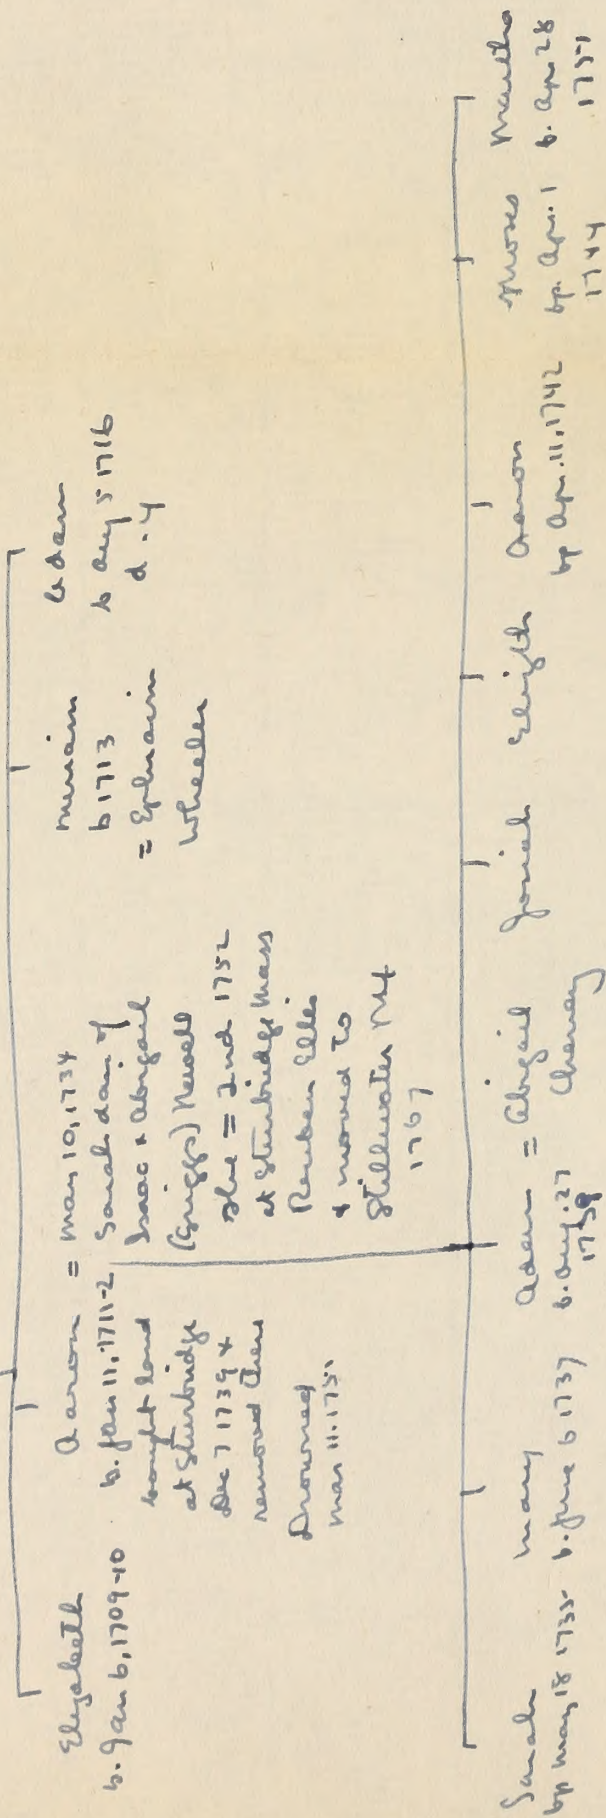 Elizabeth
b. Jan 6, 1709-10
Aaron = May 10, 1734
b. Jan 11, 1711-2
bought land
at Sturbridge
Dec 7 1739 &
removed there
Drowned
Mar 11. 1751
Sarah dau of
Isaac & Abigail
(Griggs) Newell
She = 2nd 1752
at Sturbridge Mass
Reuben Ellis
& moved to
Stillwater NY
1767
Miriam
b 1713
= Ephraim
Wheeler
Adam
b Aug 5 1716
d. y
Sarah
bp May 18 1735
Mary
b. June 6 1737
Adam = Abigail
b. Aug. 27
1739
Cheney
Josiah
Elizth
Aaron
bp Apr. 11, 1742
Moses
bp. Apr. 1
1744
Martha
b. Apr 28
1751